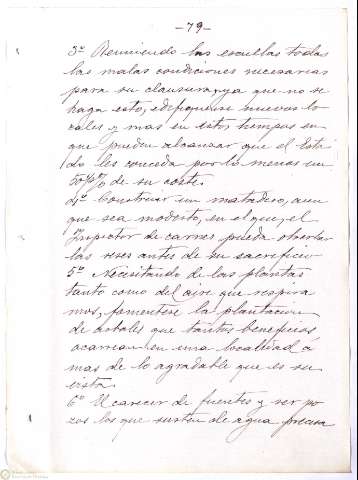 -79-
3º Reuniendo las escuelas todas
las malas condiciones necesarias
para su clausura, ya que no se
haga esto, edifiquense nuevos lo
cales y mas en estos tiempos en
que pueden alcanzar que el Esta
do les conceda por lo menos un
50% de su coste.
4º Construir un matadero, aun
que sea modesto, en el que, el
Inspector de carnes pueda observar
las reses antes de su sacrificio
5º Necesitando de las plantas
tanto como del aire que respira
mos, fomentese la plantacion
de arboles que tantos beneficios
acarrean en una localidad á
mas de lo agradable que es su
vista.
6º El carecer de fuentes y ser po
zos los que surten de agua precisa